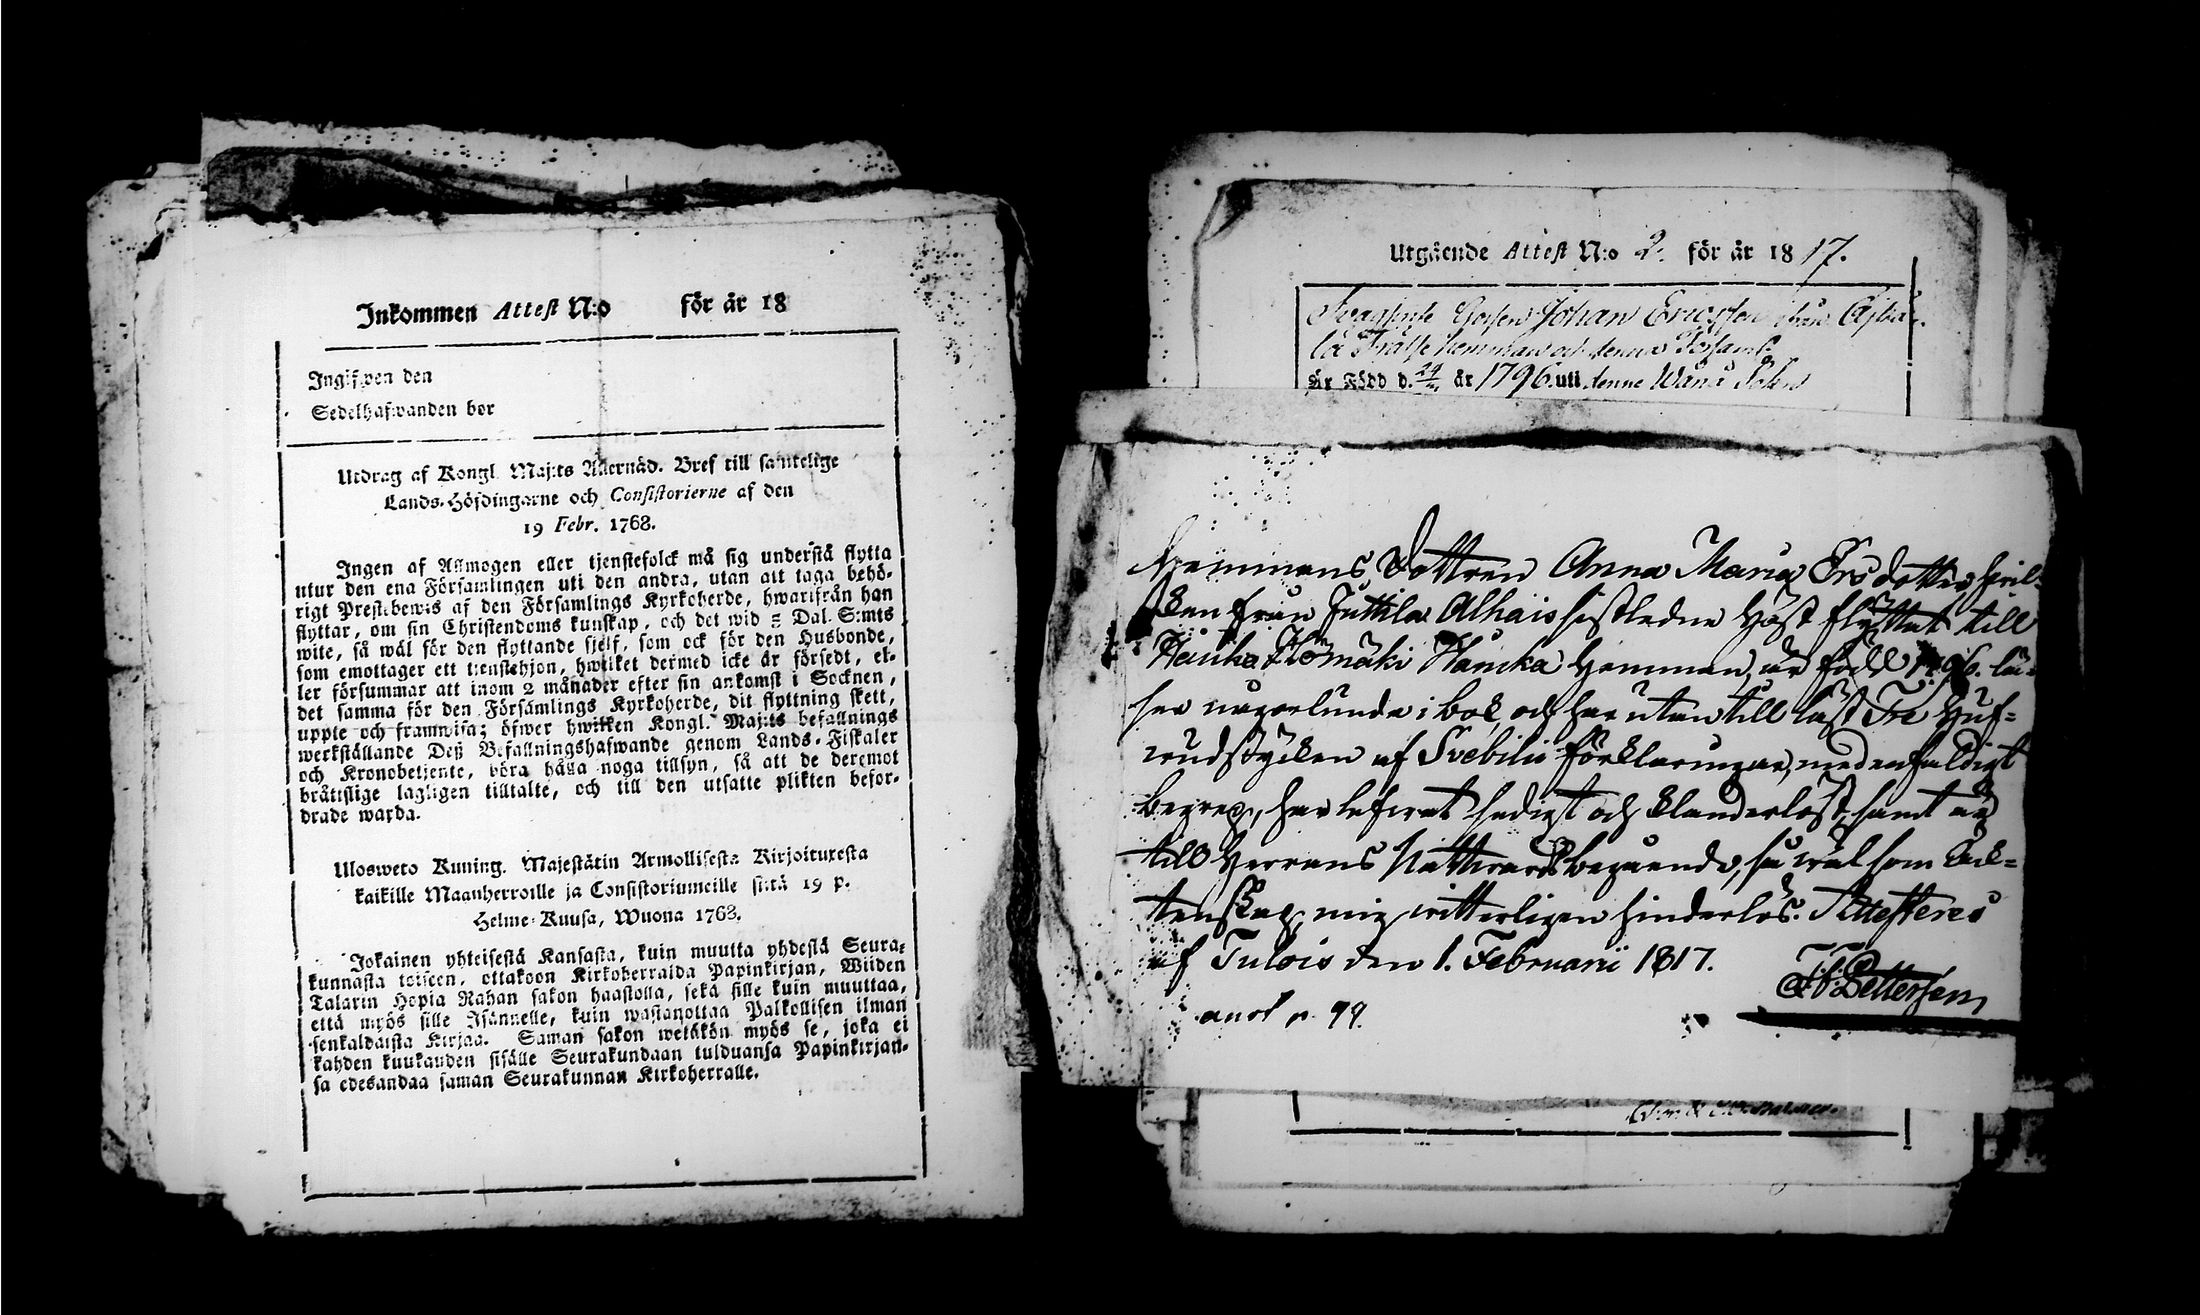 Inkommen Attest N:o för år 18
Ingifwen den
Sedelhafwanden bor
Utdrag af Kongl. Maj:ts Allernåd. Bref till samtelige
Lands-Höfdingarne och Consistorierne af den
19 Febr. 1768.
Ingen af Allmogen eller tjenstefolck må sig understå flytta
utur den ena Församlingen uti den andra, utan att taga behö-
rigt Prestebewis af den Församlings Kyrkoherde, hwarifrån han
flyttar, om sin Christendoms kunskap, och det wid 5 Dal. S:mts
wite, så wäl för den flyttande sjelf, som ock för den Husbonde,
som emottager ett tienstehjon, hwilket dermed icke är försedt, el-
ler försummar att inom 2 månader efter sin ankomst i Socknen,
det samma för den Församlings Kyrkoherde, dit flyttning skett,
uppte och framwisa; öfwer hwilken Kongl. Maj:ts befallnings
werkställande Deß Befallningshafwande genom Lands-Fiskaler
och Kronobetjente, böra hålla noga tillsyn, så att de deremot
bråttslige lagligen tilltalte, och till den utsatte plikten befor-
drade warda.
Ulosweto Kuning. Majestätin Armollisesta Kirjoituxesta
kaikille Maanherroille ja Consistoriumeille siitä 19 p.
Helme-Kuusa, Wuona 1768.
Jokainen yhteisestä Kansasta, kuin muutta yhdestä Seura-
kunnasta toiseen, ottakoon Kirkoherralda Papinkirjan, Wiiden
Talarin Hopia Rahan sakon haastolla, sekä sille kuin muuttaa,
että myös sille Isännelle, kuin wastanottaa Palkollisen ilman
senkaldaista Kirjaa. Saman sakon wetäkön myös se, joka ei
kahden kuukauden sisälle Seurakundaan tulduansa Papinkirjan-
sa edesandaa saman Seurakunnan Kirkoherralle.
Utgående Attest N:o 2. för år 1817.
Johan Ericsson från
hemman och denna Församl:
Är Född d. 29 år 1796. uti denne Wånå Sokn
Hemmans Dottren Anna Maria Ersdotter, hvil-
ken från Juttila Alhais sistledne Höst flyttat till
Hauho Hömäki Hannka Hemman, är född 1796. lä-
ser någorlunda i bok och har utantill läst Tre Huf-
wudstycken af Svebilii förklaringar, med enfaldigt
begrep, har lefwat sedigt och klanderlöst, samt är
till Herrans Nattward begående, så wäl som Eck-
tenskap, mig witterligen hinderlös. Attesteres
af Tulois den 1. Februarii 1817.
Pettersen
anot p. 99.